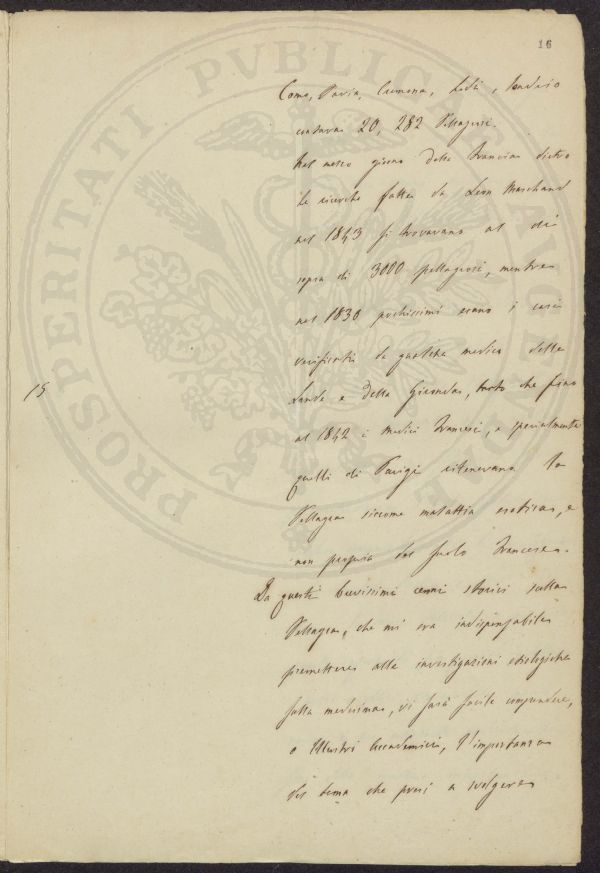 16
Como, Pavia, Cremona, Lodi, Sondrio
contava 20,282 Pellagrosi.
Nel mezzo giorno della Francia dietro
le ricerche fatte da Leon Marchand
nel 1843 si trovavano al di
sopra di 3000 pellagrosi, mentre
nel 1830 pochissimi erano i casi
verificati da qualche medico delle
Lande e della Gironda, tanto che fino
15
al 1842 i Medici Francesi, e specialmente
quelli di Parigi ritenevano la
Pellagra siccome malattia esotica, e
non propria del suolo Francese.
Da questi brevissimi cenni storici sulla
Pellagra, che mi era indispensabile
premettere alle investigazioni etiologiche
sulla medesima, vi sarà facile comprendere,
o Illustri Accademici, l'importanza
del tema che presi a svolgere
PROSPERITATI PVBLICAE AVGENDAE